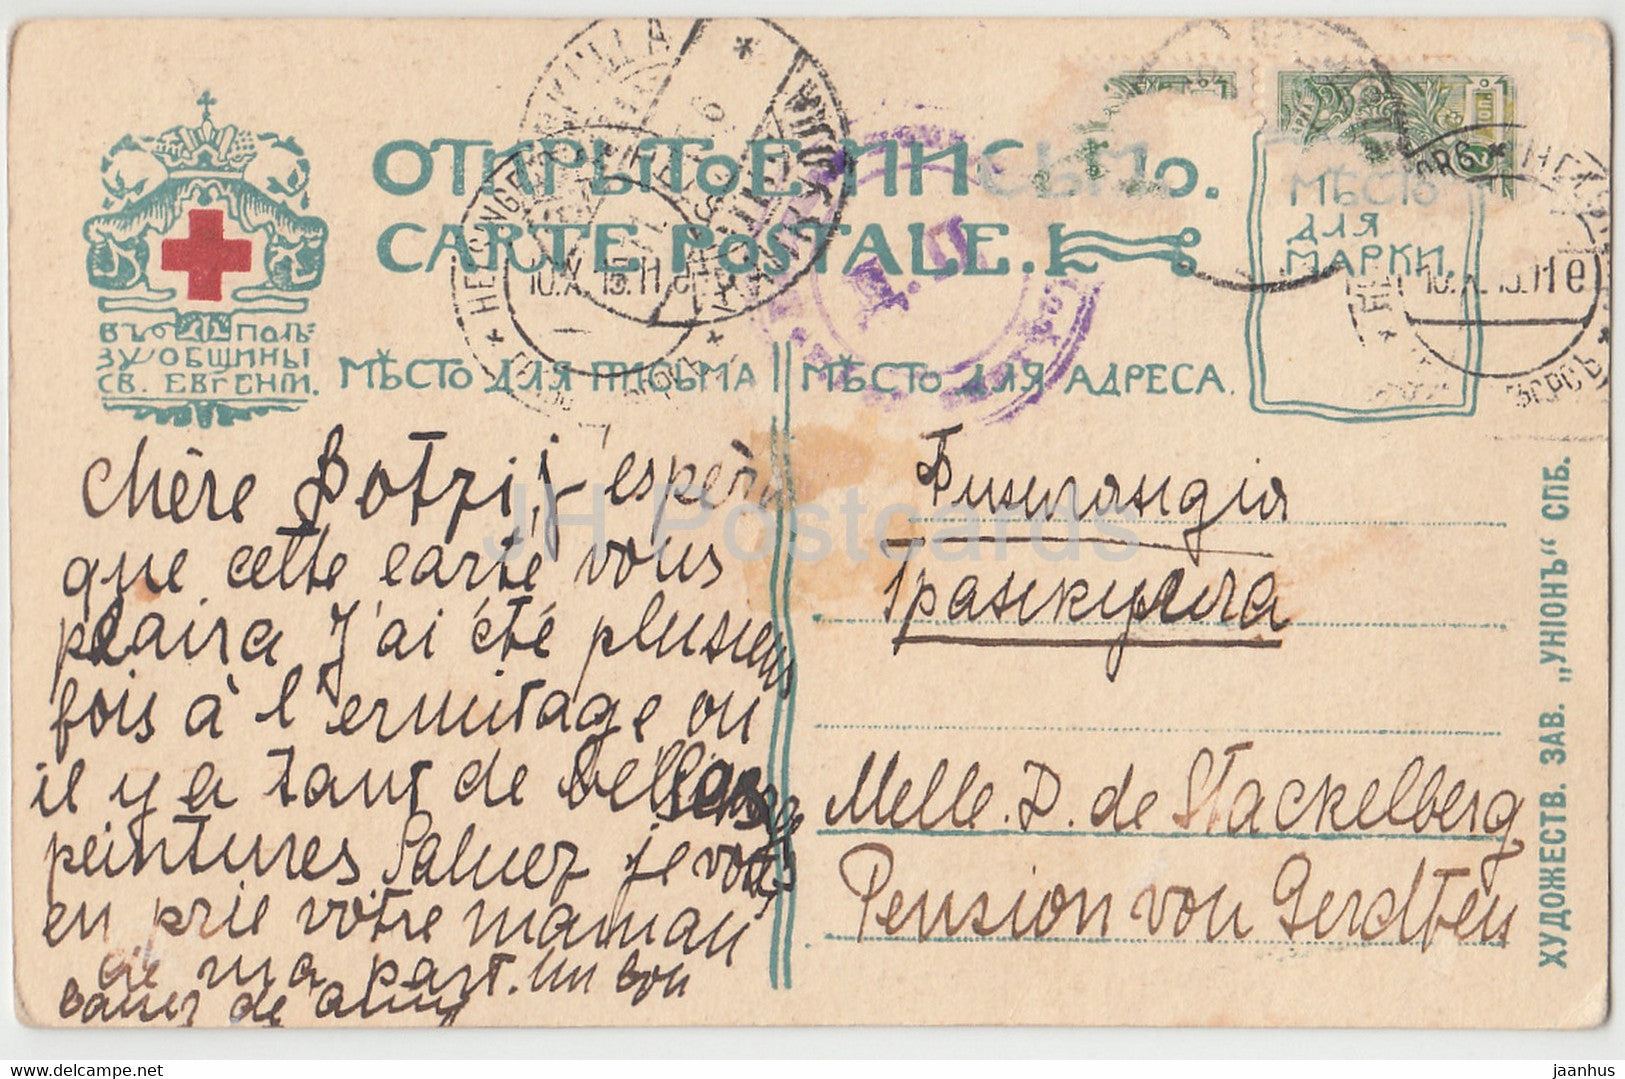 ОТКРЫТОЕ ПИСЬМО.
CARTE POSTALE.
ВЪ ПОЛЬ-
ЗУ ОБЩИНЫ
СВ. ЕВГЕНІИ.
МѢСТО ДЛЯ ПИСЬМА
МѢСТО ДЛЯ АДРЕСА.
МѢСТО
ДЛЯ
МАРКИ.
10.X.15.11
10.X.15.11
Chère Botzi, j'espère
que cette carte vous
plaira J'ai été plusieurs
fois à l'ermitage ou
il y a tant de belles
peintures Saluez je vous
en prie vôtre maman
de ma part. Un bon
baiser de
Финляндія
Гранкулла
Melle. D. de Stackelberg
Pension von Gerdten
ХУДОЖЕСТВ. ЗАВ. „УНІОНЪ“ СПБ.
JH Postcards
delcampe.net
jaanhus